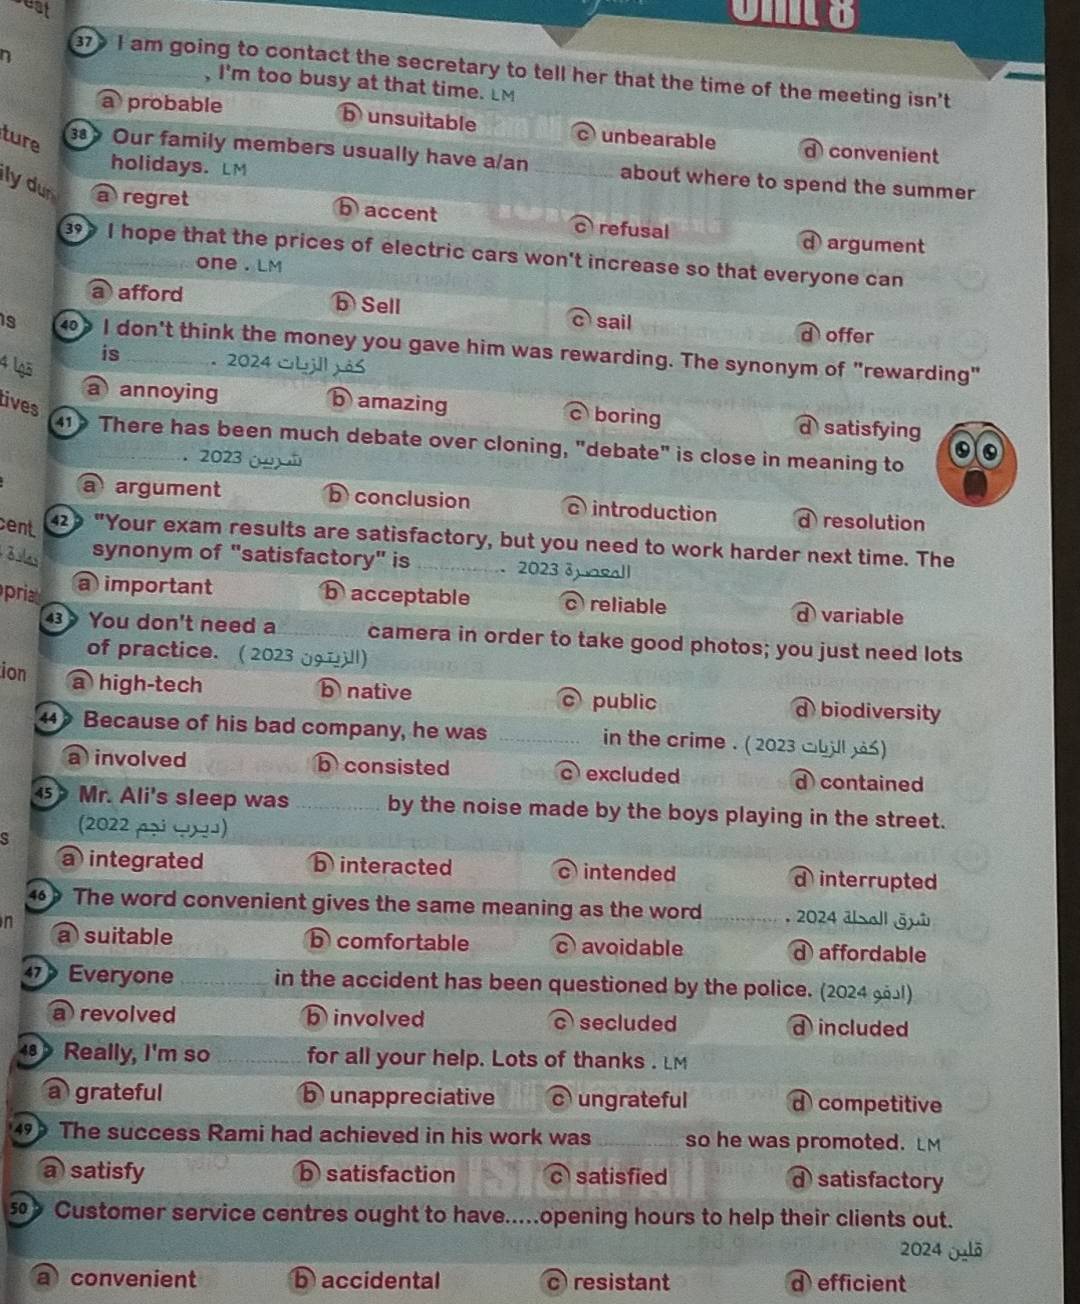 Unit 8
37 I am going to contact the secretary to tell her that the time of the meeting isn't
............, I'm too busy at that time. LM
a probable b unsuitable c unbearable d convenient
38 Our family members usually have a/an ............ about where to spend the summer
holidays. LM
a regret b accent c refusal d argument
39 I hope that the prices of electric cars won't increase so that everyone can
............ one . LM
a afford b Sell c sail d offer
40 I don't think the money you gave him was rewarding. The synonym of "rewarding"
is ............. 2024 كفر الزيات
a annoying b amazing c boring d satisfying
41 There has been much debate over cloning, "debate" is close in meaning to
............. 2023 شربين
a argument b conclusion c introduction d resolution
42 "Your exam results are satisfactory, but you need to work harder next time. The
synonym of "satisfactory" is ............. 2023 المعصرة
a important b acceptable c reliable d variable
43 You don't need a ............ camera in order to take good photos; you just need lots
of practice. ( 2023 الزيتون)
a high-tech b native c public d biodiversity
44 Because of his bad company, he was ............ in the crime . ( 2023 كفر الزيات)
a involved b consisted c excluded d contained
45 Mr. Ali's sleep was ............ by the noise made by the boys playing in the street.
(2022 ديرب نجم)
a integrated b interacted c intended d interrupted
46 The word convenient gives the same meaning as the word ............ . 2024 شرق المحلة
a suitable b comfortable c avoidable d affordable
47 Everyone ............ in the accident has been questioned by the police. (2024 ادفو)
a revolved b involved c secluded d included
48 Really, I'm so ............ for all your help. Lots of thanks . LM
a grateful b unappreciative c ungrateful d competitive
49 The success Rami had achieved in his work was ............ so he was promoted. LM
a satisfy b satisfaction c satisfied d satisfactory
50 Customer service centres ought to have.....opening hours to help their clients out.
2024 قلين
a convenient b accidental c resistant d efficient